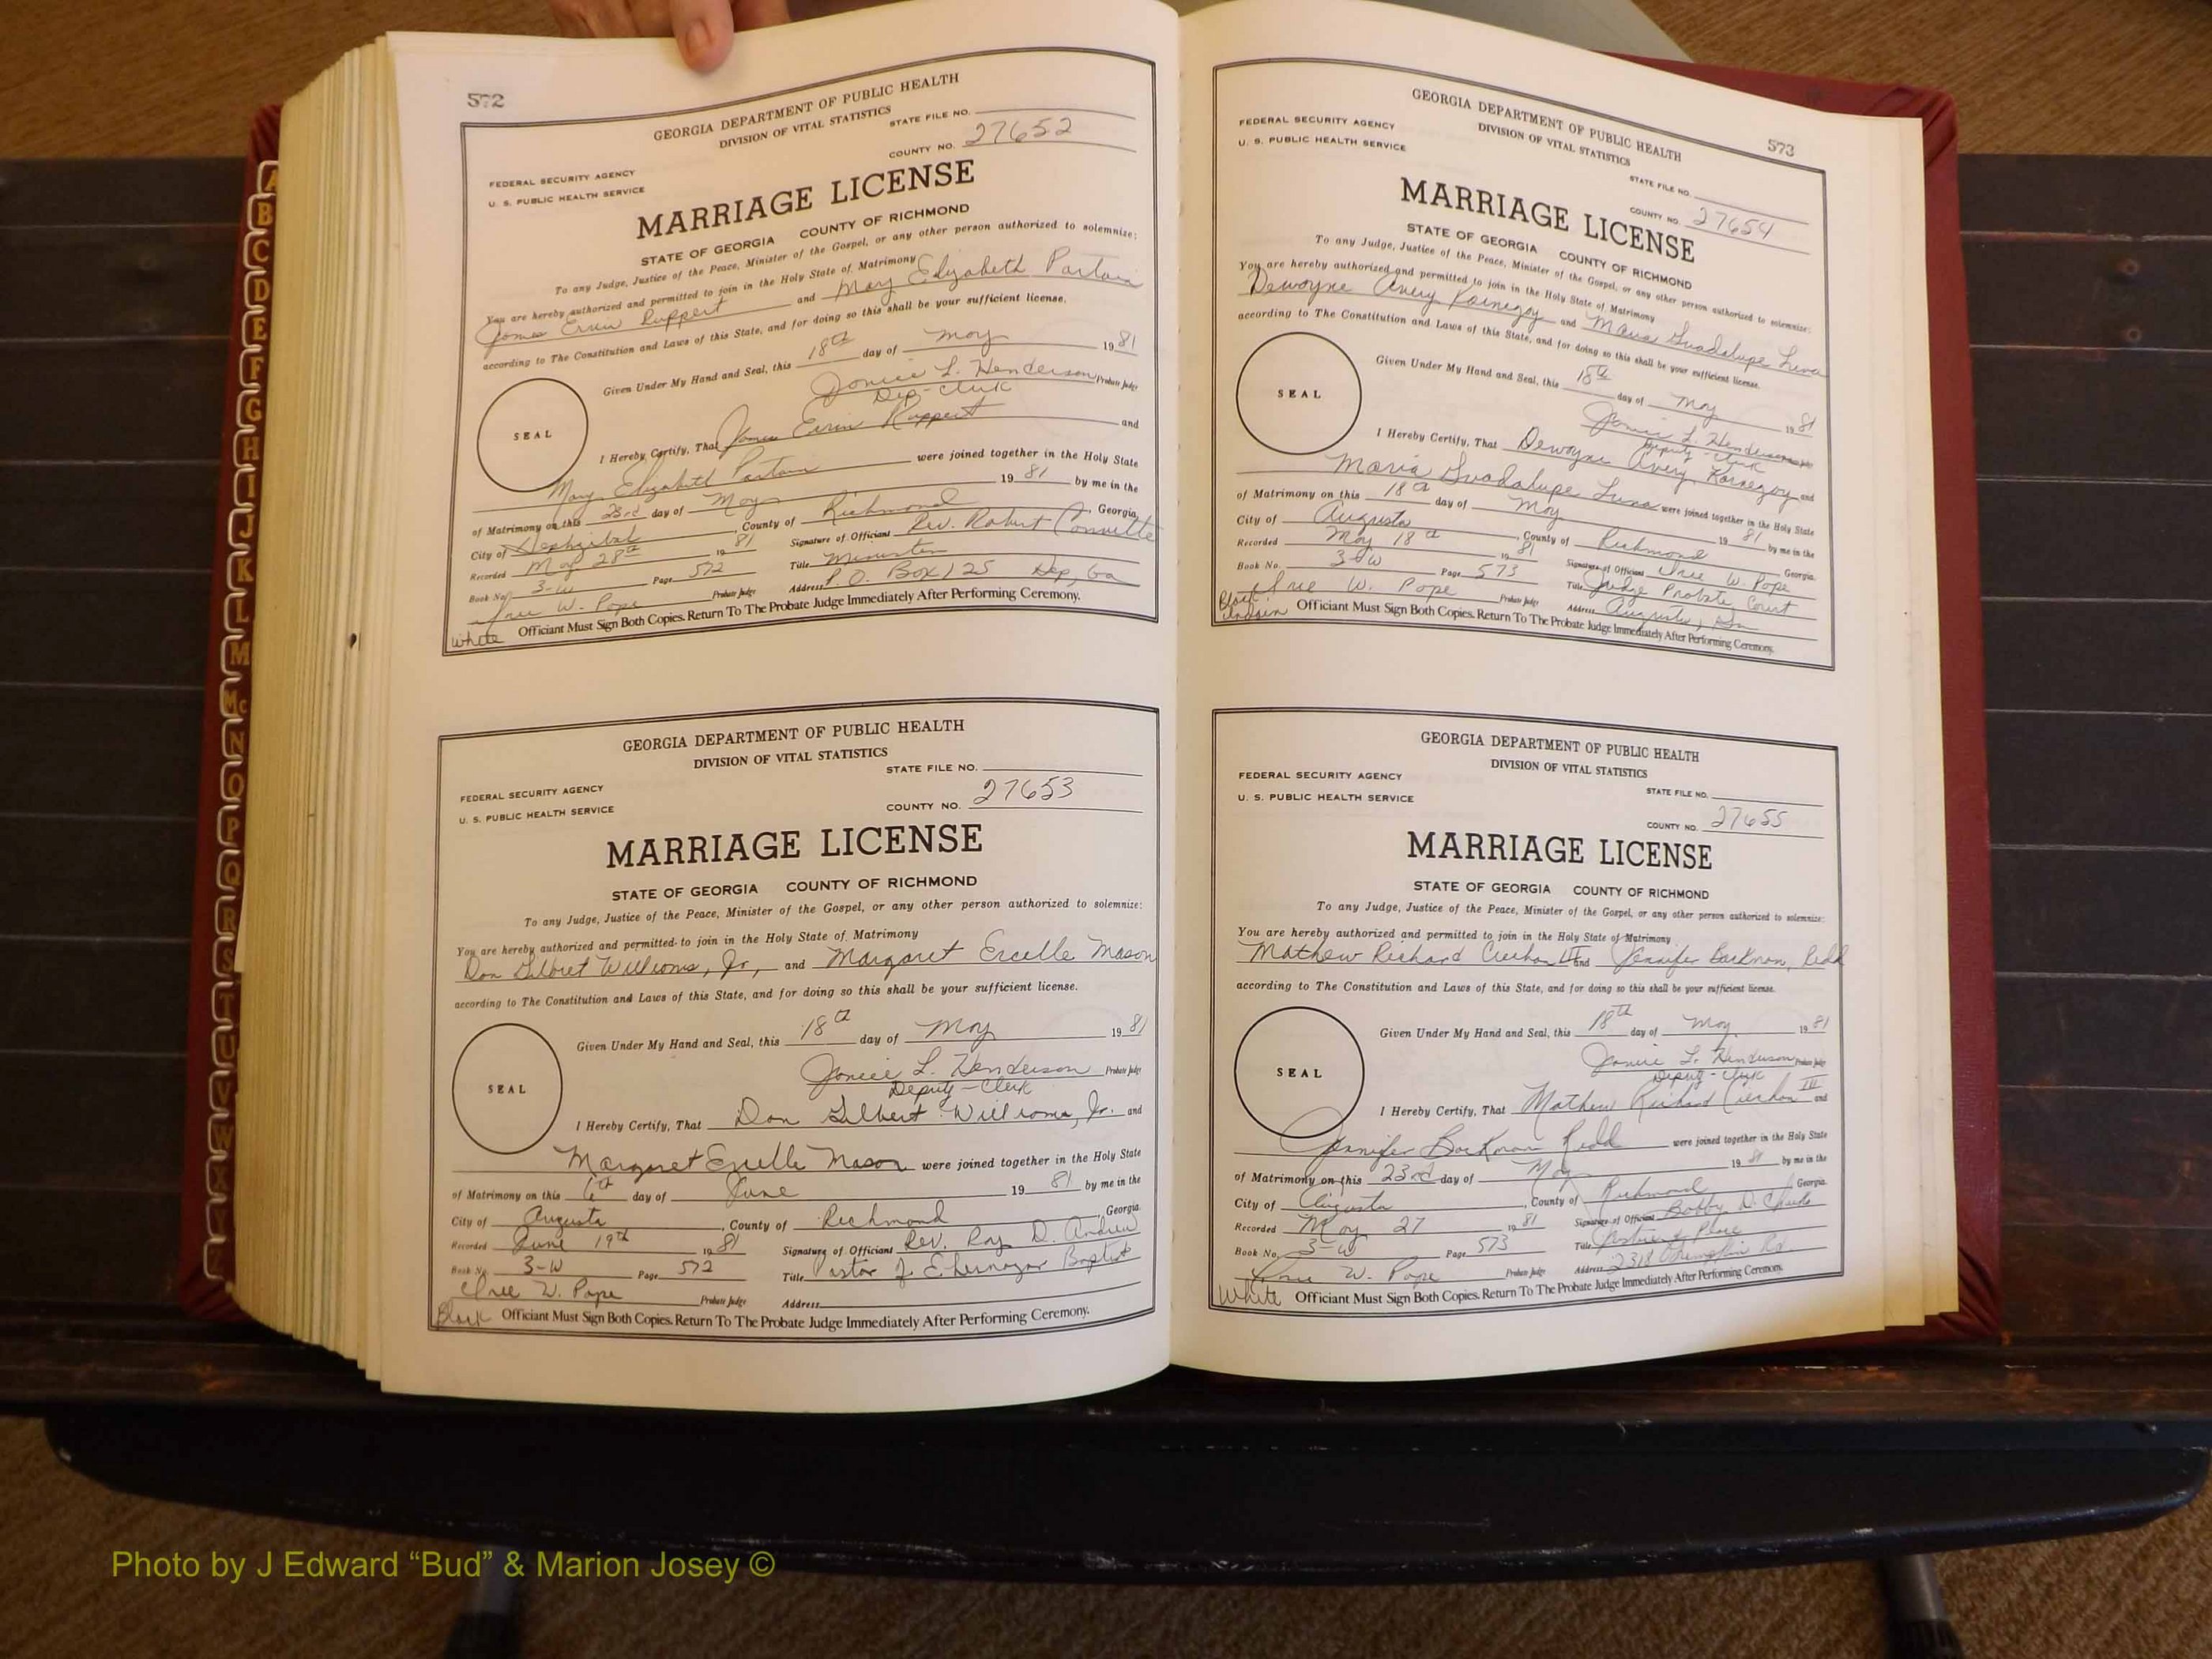 572
GEORGIA DEPARTMENT OF PUBLIC HEALTH
DIVISION OF VITAL STATISTICS
STATE FILE NO.
COUNTY NO. 27652
FEDERAL SECURITY AGENCY
U. S. PUBLIC HEALTH SERVICE
MARRIAGE LICENSE
STATE OF GEORGIA COUNTY OF RICHMOND
To any Judge, Justice of the Peace, Minister of the Gospel, or any other person authorized to solemnize:
You are hereby authorized and permitted to join in the Holy State of Matrimony
James Ervin Ruppert and Mary Elizabeth Partain
according to The Constitution and Laws of this State, and for doing so this shall be your sufficient license.
Given Under My Hand and Seal, this 18th day of May 1981
Janice L. Henderson Probate Judge
Dep-Clerk
SEAL
I Hereby Certify, That James Ervin Ruppert and
Mary Elizabeth Partain were joined together in the Holy State
of Matrimony on this 23rd day of May 19 81 by me in the
City of Hephzibah, County of Richmond, Georgia
Recorded May 28th 19 81 Signature of Officiant Rev. Robert
Book No. 3-W Page 572 Title Minister
W. Pope Probate Judge Address P.O. Box 125 Hep, Ga
White Officiant Must Sign Both Copies. Return To The Probate Judge Immediately After Performing Ceremony.
GEORGIA DEPARTMENT OF PUBLIC HEALTH
DIVISION OF VITAL STATISTICS
STATE FILE NO.
COUNTY NO. 27653
FEDERAL SECURITY AGENCY
U. S. PUBLIC HEALTH SERVICE
MARRIAGE LICENSE
STATE OF GEORGIA COUNTY OF RICHMOND
To any Judge, Justice of the Peace, Minister of the Gospel, or any other person authorized to solemnize:
You are hereby authorized and permitted to join in the Holy State of Matrimony
Don Gilbert Williams, Jr., and Margaret Ercelle Mason
according to The Constitution and Laws of this State, and for doing so this shall be your sufficient license.
Given Under My Hand and Seal, this 18th day of May 1981
Janice L. Henderson Probate Judge
Deputy-Clerk
SEAL
I Hereby Certify, That Don Gilbert Williams, Jr. and
Margaret Ercelle Mason were joined together in the Holy State
of Matrimony on this 6th day of June 19 81 by me in the
City of Augusta, County of Richmond, Georgia
Recorded June 19th 19 81 Signature of Officiant Rev. Roy D. Andrew
Book No. 3-W Page 572 Title Pastor of Baptist
W. Pope Probate Judge Address
Black Officiant Must Sign Both Copies. Return To The Probate Judge Immediately After Performing Ceremony.
573
GEORGIA DEPARTMENT OF PUBLIC HEALTH
DIVISION OF VITAL STATISTICS
FEDERAL SECURITY AGENCY
U. S. PUBLIC HEALTH SERVICE
STATE FILE NO.
COUNTY NO. 27654
MARRIAGE LICENSE
STATE OF GEORGIA COUNTY OF RICHMOND
To any Judge, Justice of the Peace, Minister of the Gospel, or any other person authorized to solemnize:
You are hereby authorized and permitted to join in the Holy State of Matrimony
Dewayne Avery Kornegay and Maria Guadalupe Luna
according to The Constitution and Laws of this State, and for doing so this shall be your sufficient license.
Given Under My Hand and Seal, this 18th day of May 1981
Janice L. Henderson
Deputy-Clerk
SEAL
I Hereby Certify, That Dewayne Avery Kornegay and
Maria Guadalupe Luna were joined together in the Holy State
of Matrimony on this 18th day of May 19 81 by me in the
City of Augusta, County of Richmond Georgia
Recorded May 18th 19 81 Signature of Officiant W. Pope
Book No. 3-W Page 573 Title Judge Probate Court
W. Pope Probate Judge Address Augusta, Ga
Officiant Must Sign Both Copies. Return To The Probate Judge Immediately After Performing Ceremony.
GEORGIA DEPARTMENT OF PUBLIC HEALTH
DIVISION OF VITAL STATISTICS
FEDERAL SECURITY AGENCY
U. S. PUBLIC HEALTH SERVICE
STATE FILE NO.
COUNTY NO. 27655
MARRIAGE LICENSE
STATE OF GEORGIA COUNTY OF RICHMOND
To any Judge, Justice of the Peace, Minister of the Gospel, or any other person authorized to solemnize:
You are hereby authorized and permitted to join in the Holy State of Matrimony
Mathew Richard III and Jennifer Backman Redd
according to The Constitution and Laws of this State, and for doing so this shall be your sufficient license.
Given Under My Hand and Seal, this 18th day of May 1981
Janice L. Henderson Probate Judge
Deputy-Clerk
SEAL
I Hereby Certify, That Mathew Richard III and
Jennifer Backman Redd were joined together in the Holy State
of Matrimony on this 23rd day of May 19 81 by me in the
City of Augusta, County of Richmond Georgia
Recorded May 27 19 81 Signature of Officiant Bobby D.
Book No. 3-W Page 573 Title
W. Pope Probate Judge Address 2318 Rd
White Officiant Must Sign Both Copies. Return To The Probate Judge Immediately After Performing Ceremony.
A
B
C
D
E
F
G
H
I
J
K
L
M
Mc
N
O
P
Q
R
S
T
U
V
W
X
Y
Z
Photo by J Edward “Bud” & Marion Josey ©